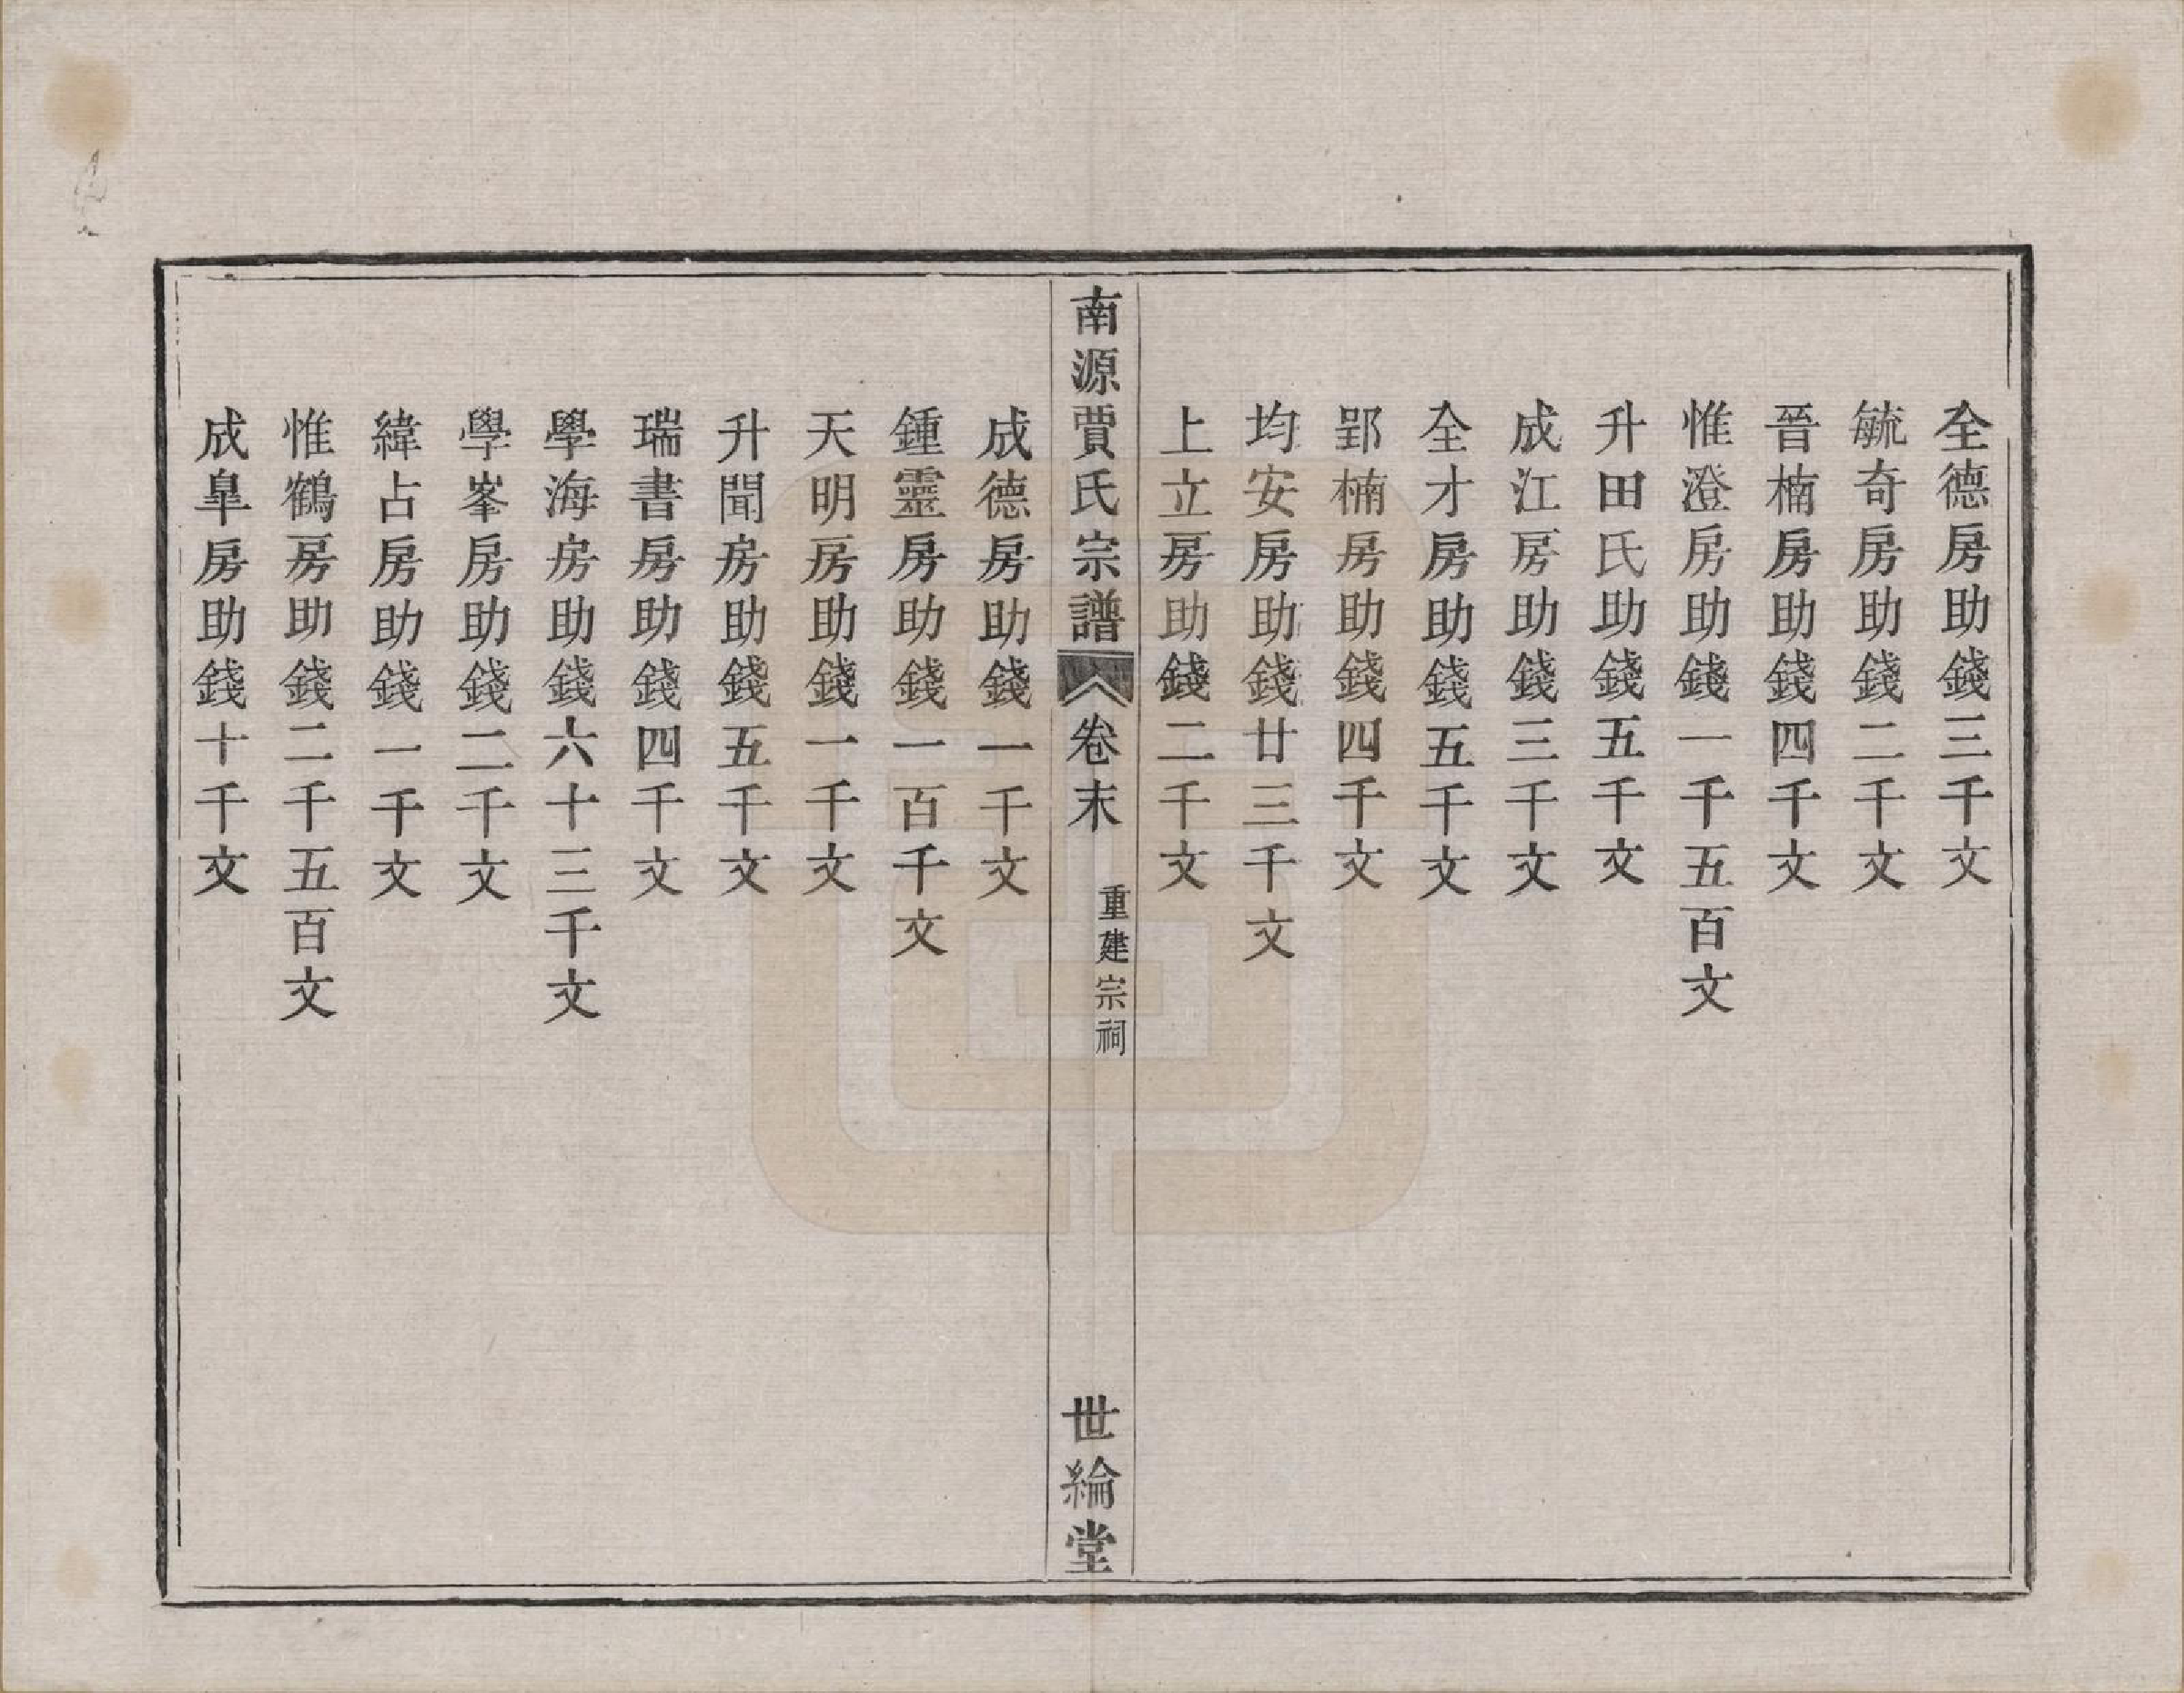 全德房助錢三千文
毓奇房助錢二千文
晉楠房助錢四千文
惟澄房助錢一千五百文
升田氏助錢五千文
成江房助錢三千文
全才房助錢五千文
郢楠房助錢四千文
均安房助錢廿三千文
上立房助錢二千文
南源賈氏宗譜
卷末
重建宗祠
世綸堂
成德房助錢一千文
鍾靈房助錢一百千文
天明房助錢一千文
升聞房助錢五千文
瑞書房助錢四千文
學海房助錢六十三千文
學峯房助錢二千文
緯占房助錢一千文
惟鶴房助錢二千五百文
成臯房助錢十千文